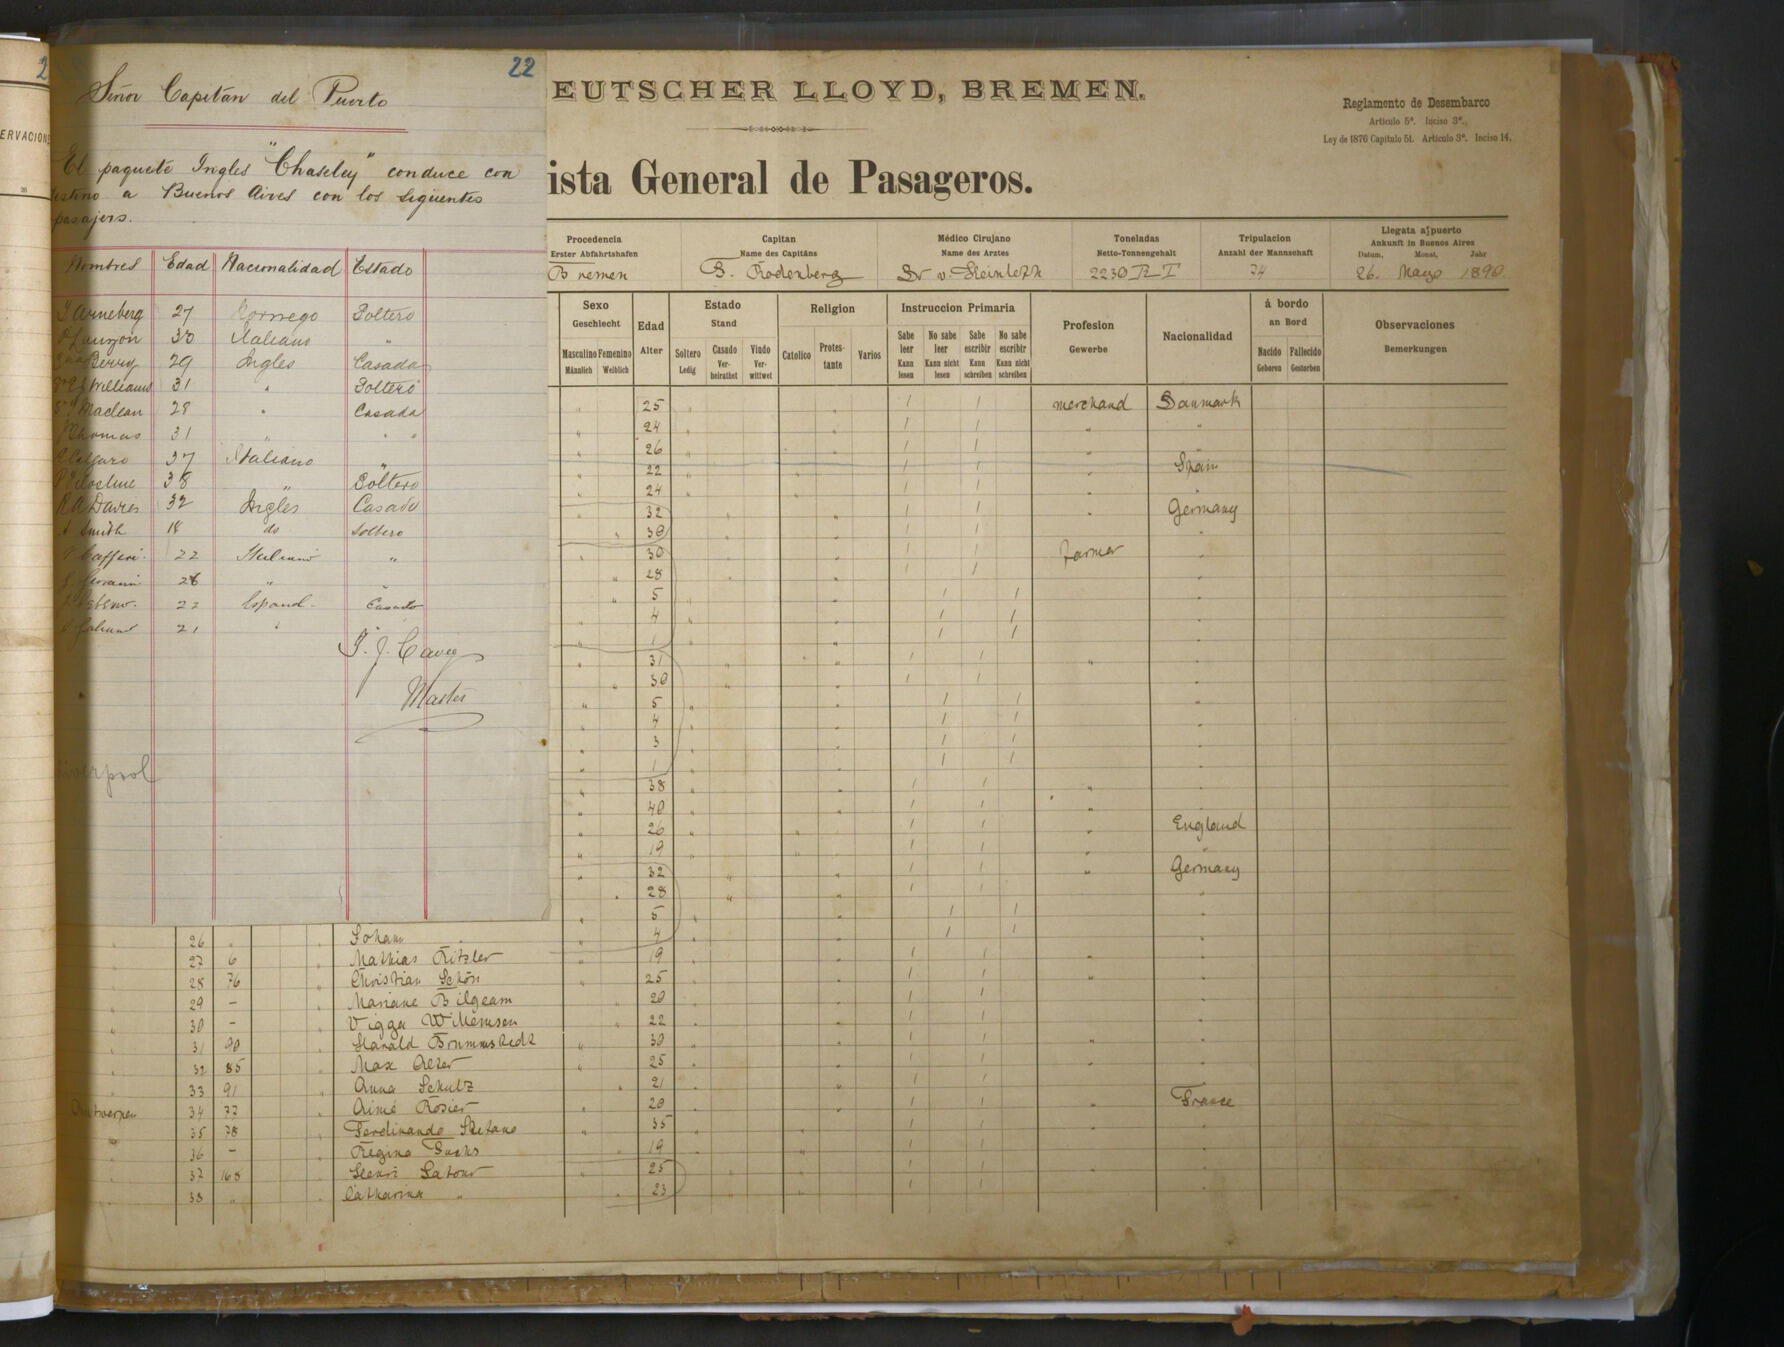 2
ERVACIONE
22
Señor Capitan del Puerto
El paquete Ingles "Chaseley" conduce con
estino a Buenos Aires con los siguientes
pasajers.
Nombres Edad Nacionalidad Estado
Arneberg 27 Noruego Soltero
30 Italiano "
Berry 29 Ingles Casada
Williams 31 " Soltero
Maclean 28 " Casada
Thomas 31 " " "
37 Italiano "
38 " Soltero
R A Davies 32 Ingles Casado
Smith 18 do Soltero
Cafferi 22 Italiano "
28 " "
22 Espanol Casado
21 " "
T. J. Cavey
Master
iverpool
EUTSCHER LLOYD, BREMEN.
Reglamento de Desembarco
Articulo 5º. Inciso 3º.
Ley de 1876 Capitulo 51. Articulo 3º. Inciso 14.
ista General de Pasageros.
Procedencia Capitan Médico Cirujano Toneladas Tripulacion Llegata a puerto
Erster Abfahrtshafen Name des Capitäns Name des Arztes Netto-Tonnengehalt Anzahl der Mannschaft Ankunft in Buenos Aires
Datum, Monat, Jahr
Bremen Rodenberg Dr v. 2230 R T 74 26. Mayo 1890
Sexo Edad Estado Religion Instruccion Primaria Profesion Nacionalidad á bordo Observaciones
Geschlecht Alter Stand Gewerbe an Bord Bemerkungen
Masculino Femenino Soltero Casado Viudo Catolico Protes- Varios Sabe No sabe Sabe No sabe Nacido Fallecido
Männlich Weiblich Ledig Ver- Ver- tante leer leer escribir escribir Geboren Gestorben
heirathet wittwet Kann Kann nicht Kann Kann nicht
lesen lesen schreiben schreiben
" 25 " " / / merchand Danmark
" 24 " " / / " "
" 26 " " / / "
" 22 " " / / Spain
" 24 " " / / " "
" 32 " " / / " Germany
" 30 " " / / "
" 30 " / / farmer "
" 28 " " / / "
" 5 " " / / "
" 4 " " / / "
" 1 " " / / "
" 31 " " / / " "
" 30 " " / / "
" 5 " " / / "
" 4 " " / / "
" 3 " " / / "
" 1 " " / / "
" 38 " " / / " "
" 40 " " / / " "
" 26 " " / / " England
" 19 " " / / " "
" 32 " " / / " Germany
" 28 " " / / "
" 5 " " / / "
" 26 " " Johann " 4 " " / / "
" 27 6 " Mathias Ritzler " 19 " " / / " "
" 28 76 " Christian Schön " 25 " " / / " "
" 29 - " Mariane Bilgeam 20 " " / / "
" 30 - " Vigga Willemsen " 22 " " / / "
" 31 90 " Harald Brummstedt " 30 " " / / " "
" 32 85 " Max Alter " 25 " " / / " "
" 33 91 " Anna Schultz " 21 " " / / "
Antwerpen 34 77 " Aimé Rosier " 20 " " / / " France
" 35 78 " Ferdinando Stefano " 35 " " / / " "
" 36 - " Regina Fuchs " 19 " " / / "
" 37 168 " Henri Latour " 25 " " / / " "
" 38 " " Catharina " " 23 " " / / "